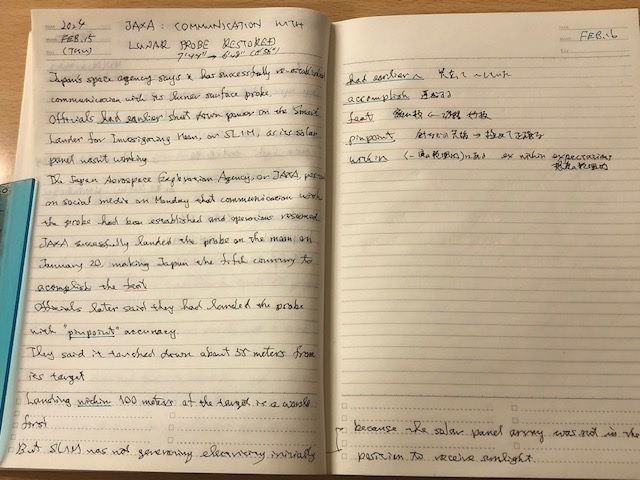 2024
FEB.15
(Thu)
JAXA: COMMUNICATION WITH
LUNAR PROBE RESTORED
Japan's space agency says it has successfully re-established
communication with its lunar surface probe.
Officials had earlier shut down power on the Smart
Lander for Investigating Moon, or SLIM, as its solar
panel wasn't working.
The Japan Aerospace Exploration Agency, or JAXA,
on social media on Monday that communication with
the probe had been established and operations resumed.
JAXA successfully landed the probe on the moon on
January 20, making Japan the fifth country to
acomplish the feat
Officials later said they had landed the probe
with "pinpoint" accuracy.
They said it touched down about 55 meters from
its target
Landing within 100 meters of the target is a world
first
But SLIM was not generating electricity initially
FEB.16
had earlier
accomplish
feat
pinpoint
within ex within expectation
because the solar panel array was not in the
position to receive sunlight.